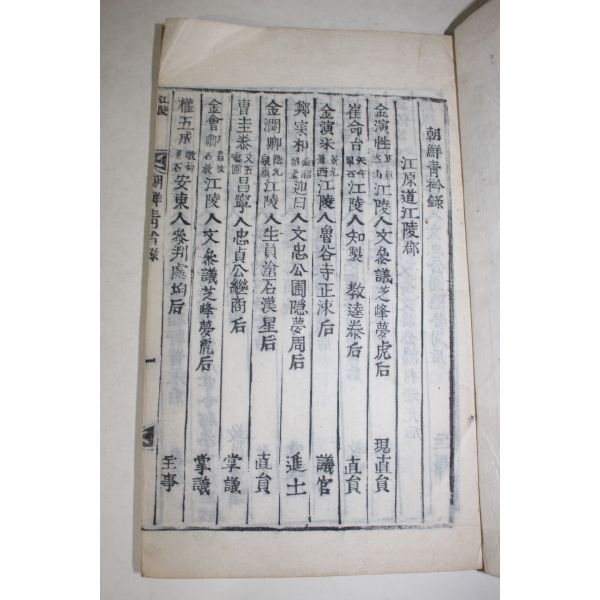 朝鮮青衿錄
江原道江陵郡
金演性 江陵人文參議芝峰夢虎后 現直員
崔命台 江陵人知製 教逵泰后 直員
金演洙 江陵人魯谷寺正涑后 議官
鄭家和 迎日人文忠公圃隱夢周后 進士
金潤卿 江陵人生員滄石漢星后 直員
曺圭泰 昌寧人忠貞公繼商后 掌議
金會卿 江陵人文參議芝峰夢虎后 掌議
權五成 安東人參判處均后 主事
江陵
朝鮮青衿錄
一